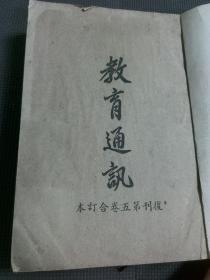 教育通訊
復刊第五卷合訂本